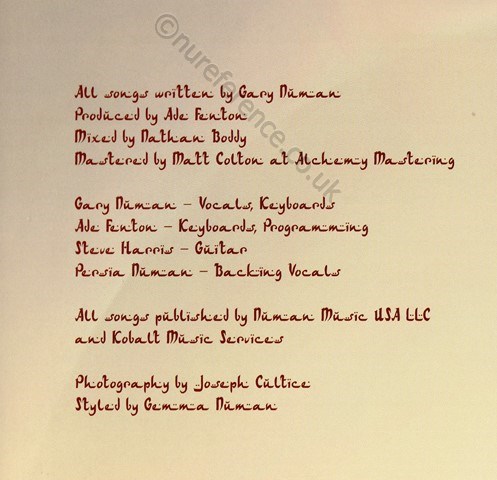 ©nureference.co.uk
All songs written by Gary Numan
Produced by Ade Fenton
Mixed by Nathan Boddy
Mastered by Matt Colton at Alchemy Mastering
Gary Numan – Vocals, Keyboards
Ade Fenton – Keyboards, Programming
Steve Harris – Guitar
Persia Numan – Backing Vocals
All songs published by Numan Music USA LLC
and Kobalt Music Services
Photography by Joseph Cultice
Styled by Gemma Numan